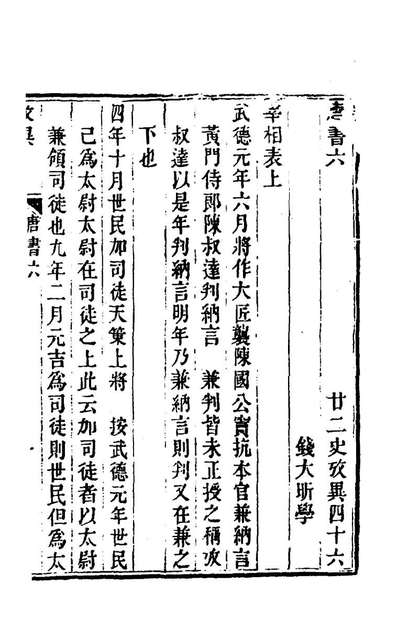 唐書六　廿二史攷異四十六
錢大昕學
宰相表上
武德元年六月將作大匠襲陳國公竇抗本官兼納言
黃門侍郎陳叔達判納言　兼判皆未正授之稱攷
叔達以是年判納言明年乃兼納言則判又在兼之
下也
四年十月世民加司徒天策上將　按武德元年世民
己爲太尉太尉在司徒之上此云加司徒者以太尉
兼領司徒也九年二月元吉爲司徒則世民但爲太
攷異　唐書六　一